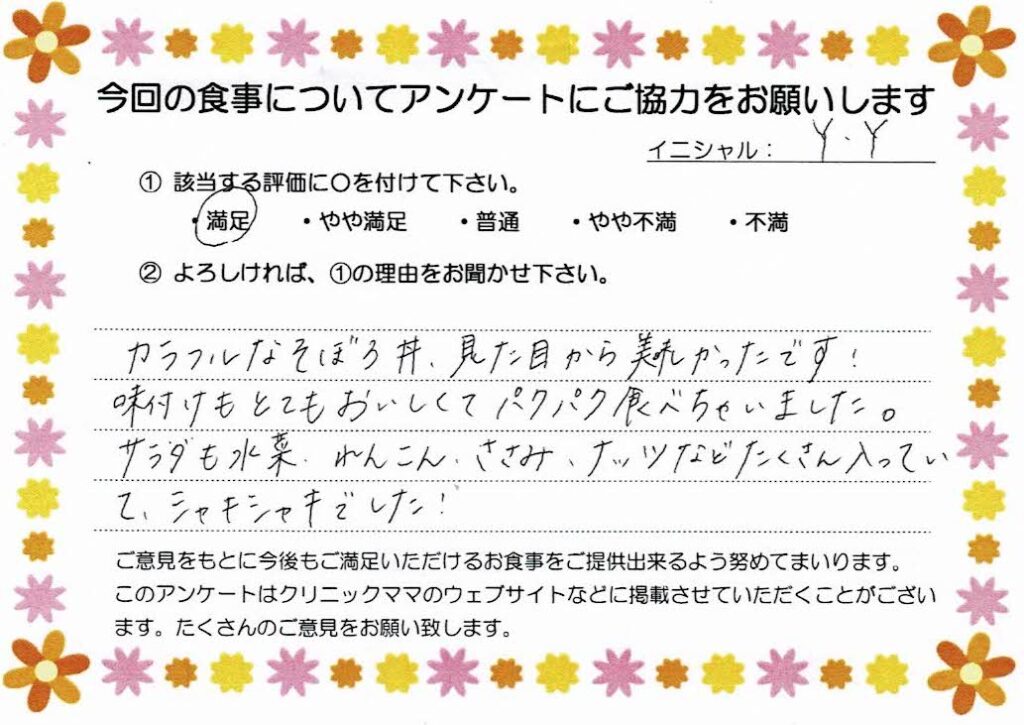 今回の食事についてアンケートにご協力をお願いします
イニシャル： Y.Y
① 該当する評価に○を付けて下さい。
・満足 ・やや満足 ・普通 ・やや不満 ・不満
② よろしければ、①の理由をお聞かせ下さい。
カラフルなそぼろ丼、見た目から美味しかったです！
味付けもとてもおいしくてパクパク食べちゃいました。
サラダも水菜、れんこん、ささみ、ナッツなどたくさん入ってい
て、シャキシャキでした！
ご意見をもとに今後もご満足いただけるお食事をご提供出来るよう努めてまいります。
このアンケートはクリニックママのウェブサイトなどに掲載させていただくことがござい
ます。たくさんのご意見をお願い致します。